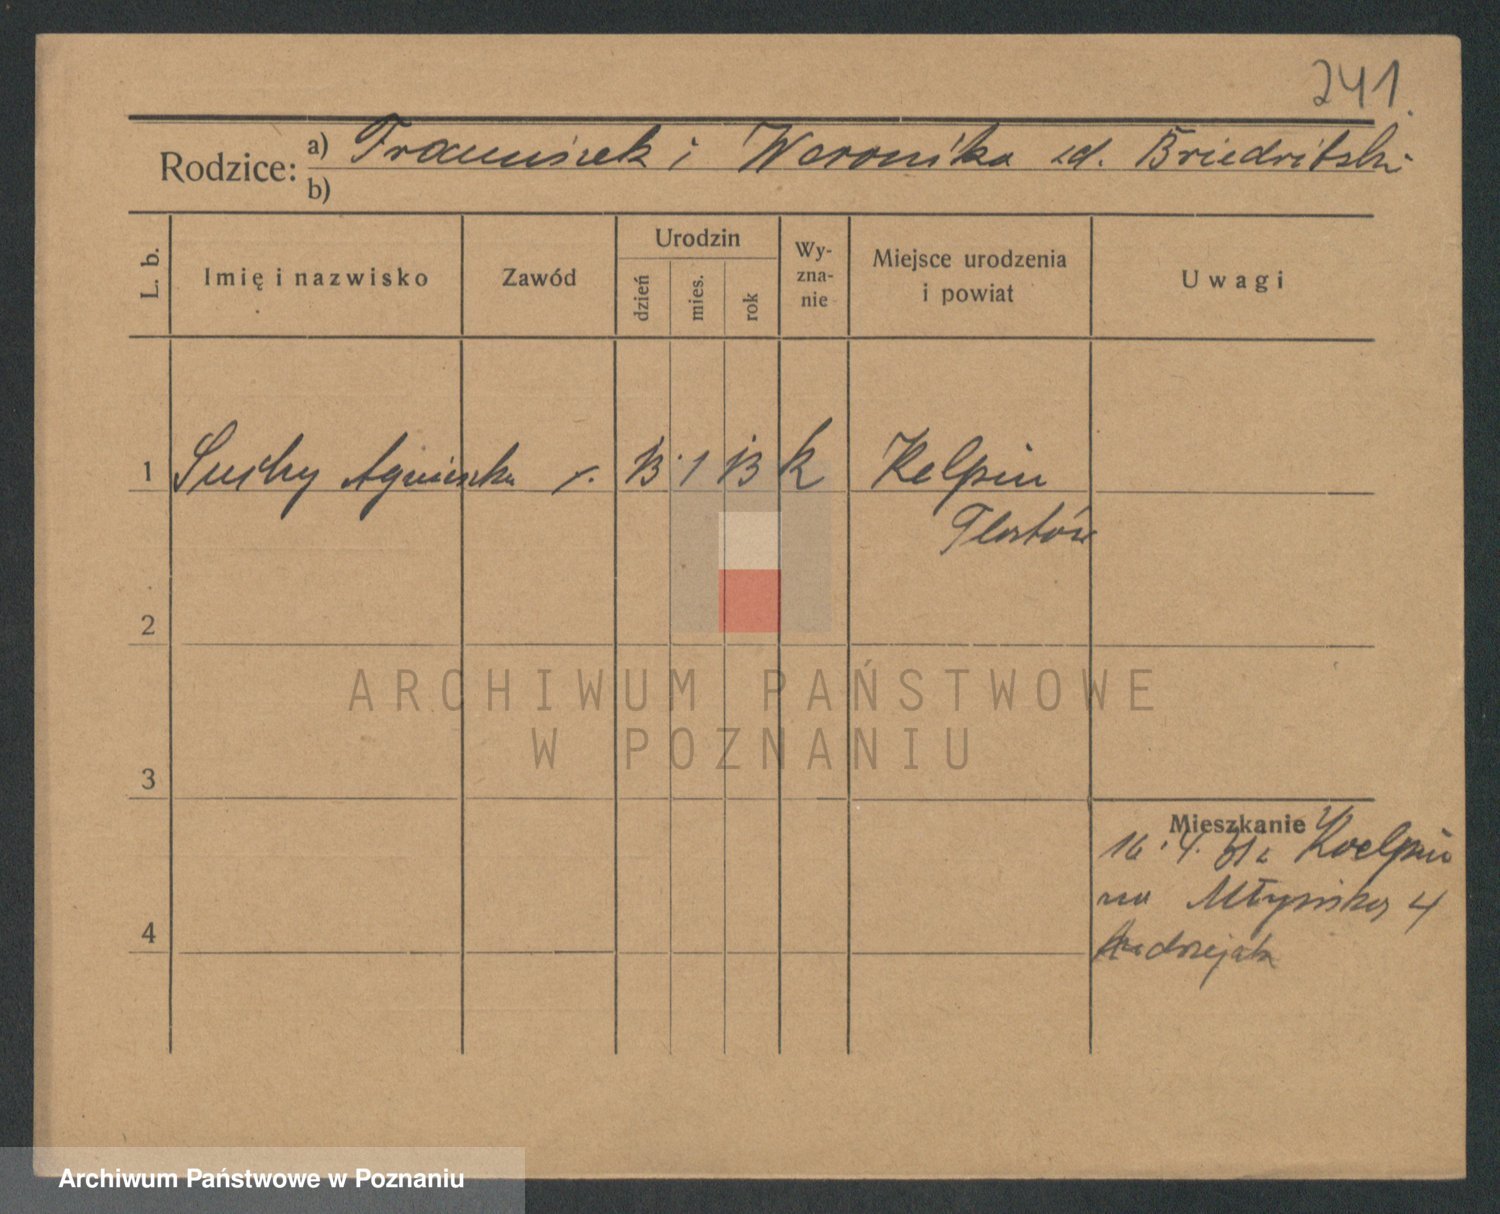 241.
Rodzice: a) Franciszek i Weronika zd. Briedritzki
b)
L. b. Imię i nazwisko Zawód Urodzin dzień mies. rok Wy-zna-nie Miejsce urodzenia i powiat Uwagi
1 Suchy Agnieszka 13 1 13 k Kelpin
Flatów
2
ARCHIWUM PAŃSTWOWE
W POZNANIU
3
Mieszkanie
16.4.31 z Koelpin
na Młyńską 4
4
Archiwum Państwowe w Poznaniu